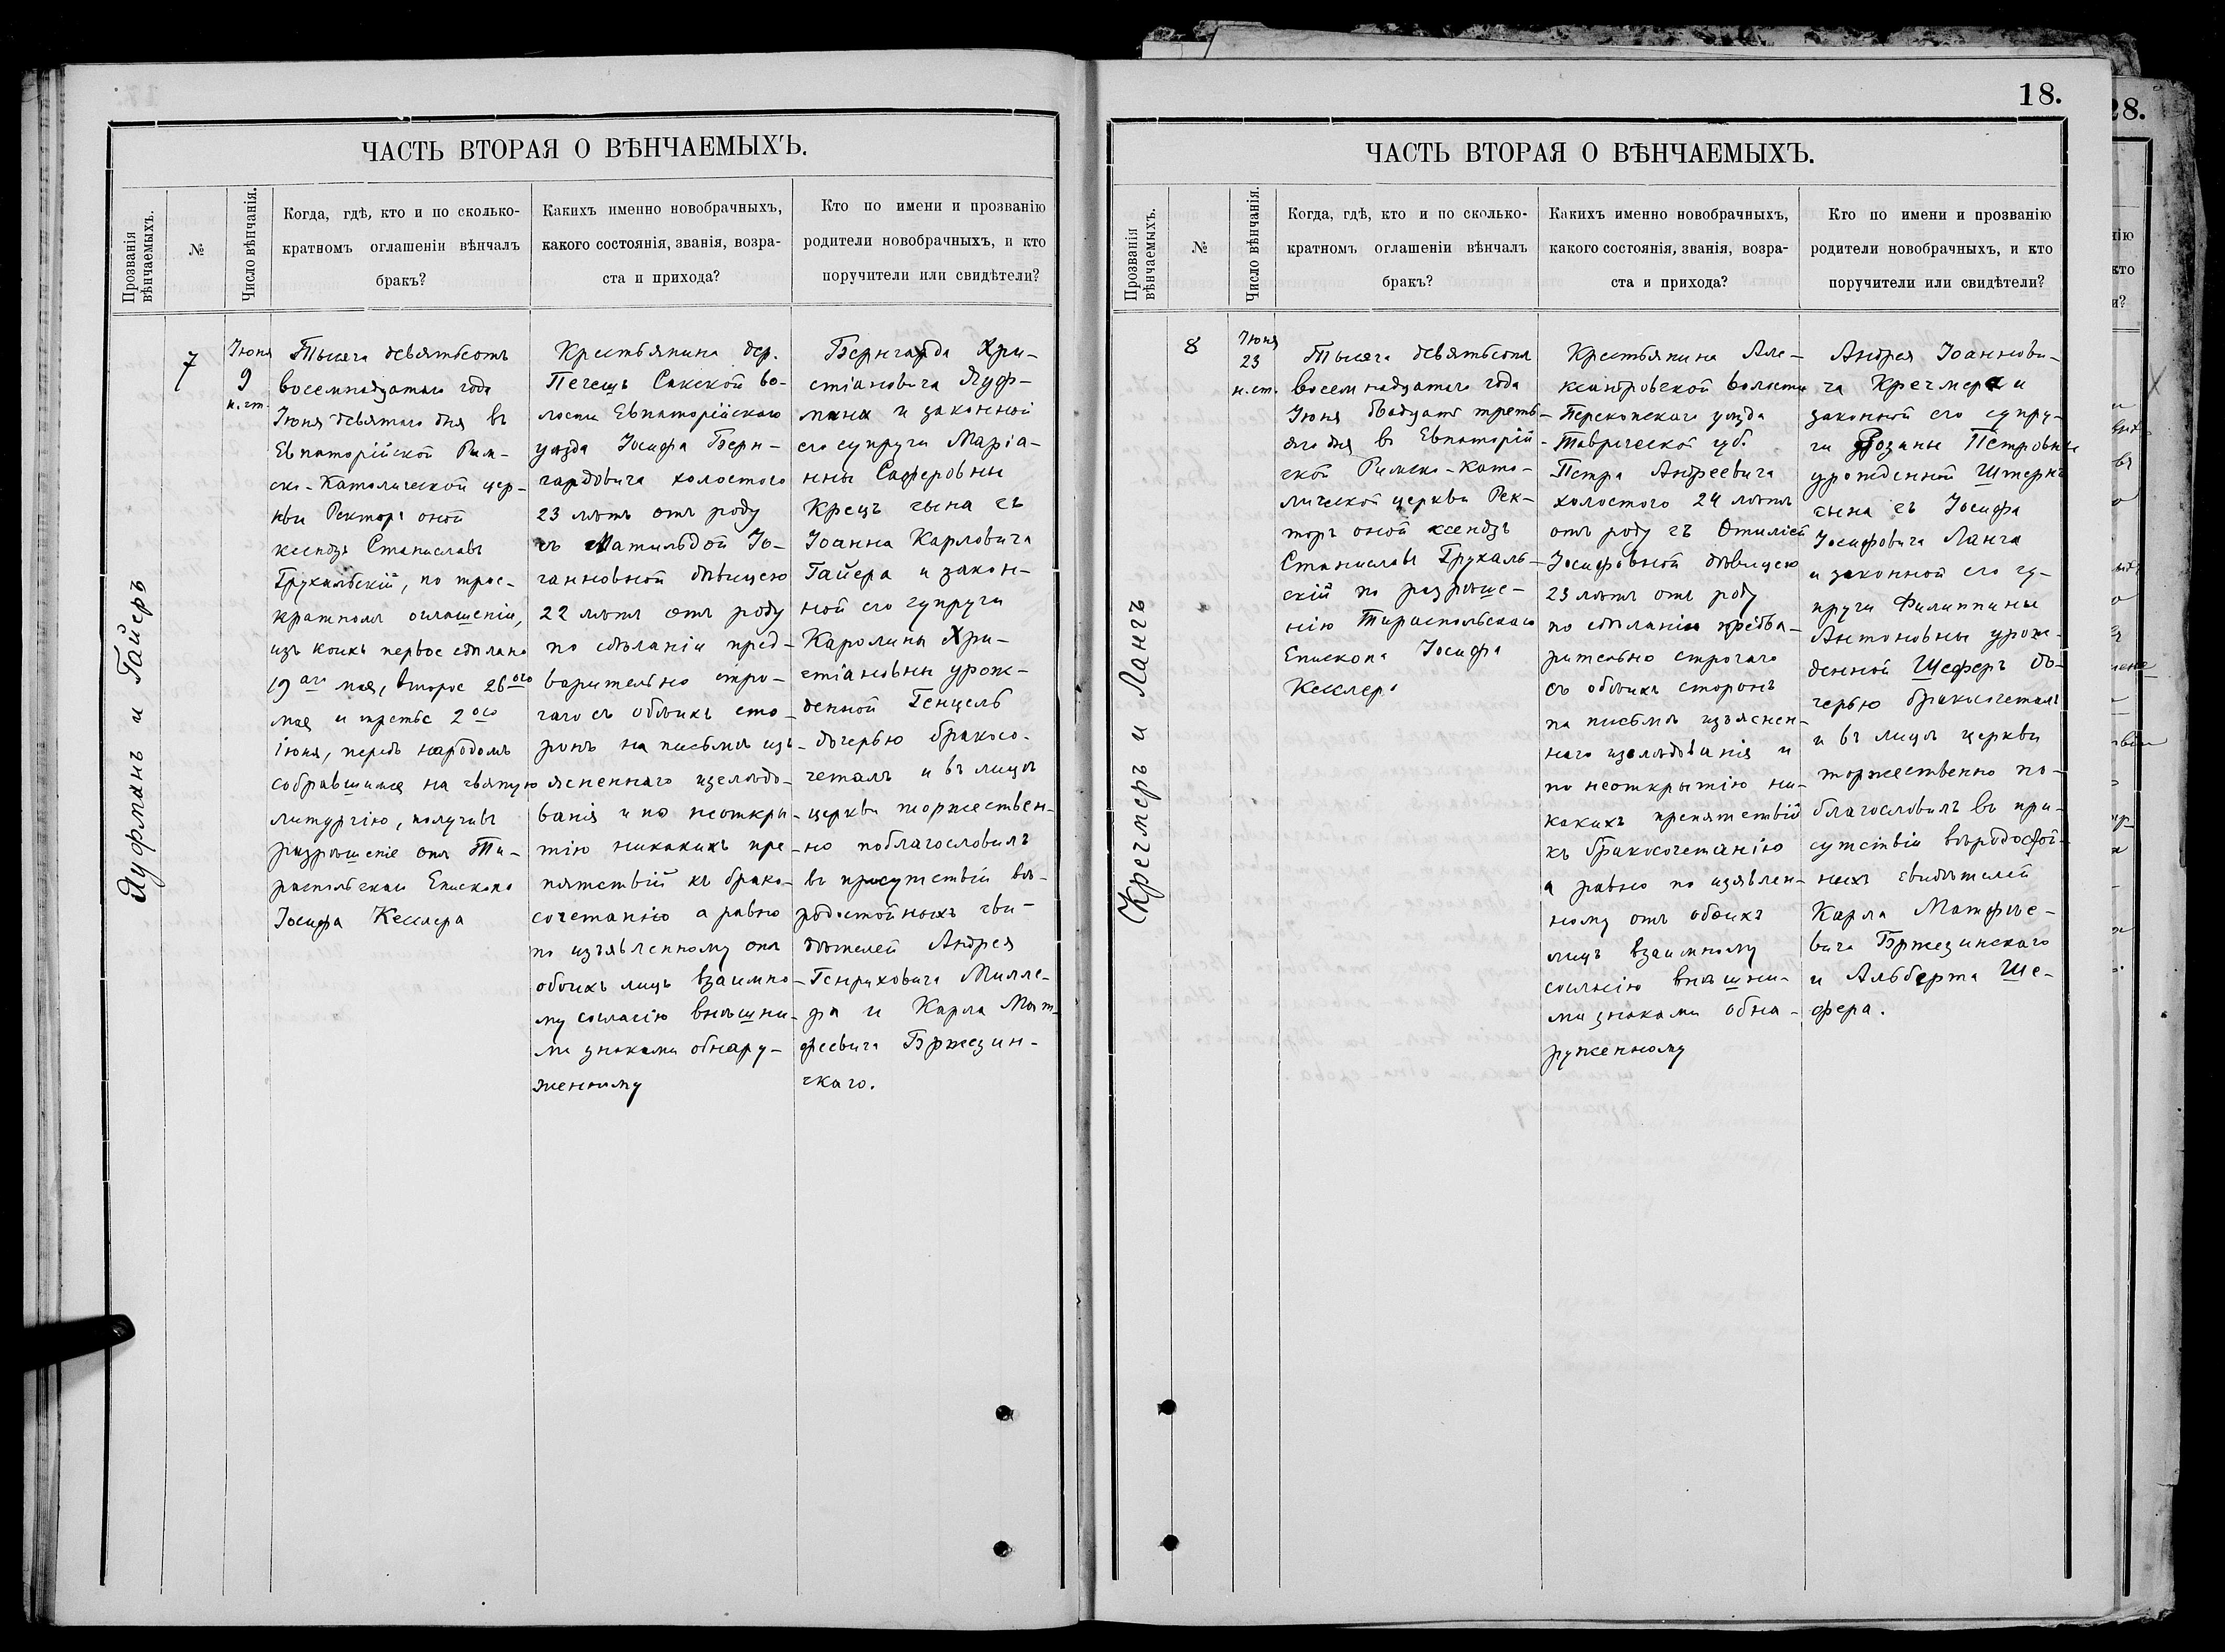 ЧАСТЬ ВТОРАЯ О ВѢНЧАЕМЫХЪ.
Прозванія вѣнчаемыхъ.
№
Число вѣнчанія.
Когда, гдѣ, кто и по сколько-
кратномъ оглашеніи вѣнчалъ
бракъ?
Какихъ именно новобрачныхъ,
какого состоянія, званія, возра-
ста и прихода?
Кто по имени и прозванію
родители новобрачныхъ, и кто
поручители или свидѣтели?
Ауфманъ и Гайеръ
7
Іюня
9
н. ст.
Тысяча девятьсотъ
восемнадцатаго года
Іюня девятаго дня въ
Евпаторійской Рим-
ско-Католической цер-
кви Ректоръ оной
ксендзъ Станиславъ
Грухальскій, по трое-
кратномъ оглашеніи,
изъ коихъ первое сдѣлано
19аго мая, второе 26ого
мая и третье 2ого
іюня, передъ народомъ
собравшимся на святую
литургію, получивъ
разрѣшеніе отъ Ти-
распольскаго Епископа
Іосифа Кесслера
Крестьянина дер.
Печещъ Сакской во-
лости Евпаторійскаго
уѣзда Іосифа Берн-
гардовича холостого
23 лѣтъ отъ роду
съ Матильдой Іо-
ганновной дѣвицею
22 лѣтъ отъ роду
по сдѣланіи пред-
варительно стро-
гаго съ обѣихъ сто-
ронъ на письмѣ изъ-
ясненнаго изслѣдо-
ванія и по неоткры-
тію никакихъ пре-
пятствій къ брако-
сочетанію а равно
по изъявленному отъ
обѣихъ лицъ взаимно-
му согласію внѣшни-
ми знаками обнару-
женному
Бернгарда Хри-
стіановича Ауф-
мана и законной
его супруги Маріа-
нны Саферовны
Крецъ сына съ
Іоанна Карловича
Гайера и закон-
ной его супруги
Каролины Хри-
стіановны урож-
денной Генцель
дочерью бракосо-
четалъ и въ лицѣ
церкви торжествен-
но поблагословилъ
въ присутствіи вѣ-
родостойныхъ сви-
дѣтелей Андрея
Генриховича Милле-
ра и Карла Мат-
феевича Бржезин-
скаго.
18.
ЧАСТЬ ВТОРАЯ О ВѢНЧАЕМЫХЪ.
Прозванія вѣнчаемыхъ.
№
Число вѣнчанія.
Когда, гдѣ, кто и по сколько-
кратномъ оглашеніи вѣнчалъ
бракъ?
Какихъ именно новобрачныхъ,
какого состоянія, званія, возра-
ста и прихода?
Кто по имени и прозванію
родители новобрачныхъ, и кто
поручители или свидѣтели?
Кречмеръ и Лангъ
8
Іюня
23
н. ст.
Тысяча девятьсотъ
восемнадцатаго года
Іюня двадцать треть-
яго дня въ Евпаторій-
ской Римско-Като-
лической церкви Рек-
торъ оной ксендзъ
Станиславъ Грухаль-
скій по разрѣше-
нію Тираспольскаго
Епископа Іосифа
Кесслера
Крестьянина Але-
ксандровской волости
Перекопскаго уѣзда
Таврической губ.
Петра Андреевича
холостого 24 лѣтъ
отъ роду съ Отиліей
Іосифовной дѣвицею
23 лѣтъ отъ роду
по сдѣланіи предва-
рительно строгаго
съ обѣихъ сторонъ
на письмѣ изъяснен-
наго изслѣдованія и
по неоткрытію ни-
какихъ препятствій
къ бракосочетанію
а равно по изявлен-
ному отъ обѣихъ
лицъ взаимному
согласію внѣшни-
ми знаками обна-
руженному
Андрея Іоаннови-
ча Кречмера и
законной его супру-
ги Розины Петровны
урожденной Штернъ
сына съ Іосифа
Іосифовича Ланга
и законной его су-
пруги Филиппины
Антоновны урож-
денной Шеферъ до-
черью бракосочеталъ
и въ лицѣ церкви
торжественно по-
благословилъ въ при-
сутствіи вѣродостой-
ныхъ свидѣтелей
Карла Матфѣе-
вича Бржезинскаго
и Альберта Ше-
фера.
28.